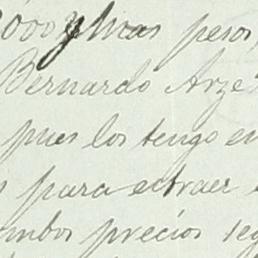 6000 y tras pesos,
Bernardo Arze
pues los tengo en
para extraer
ambos precios seg